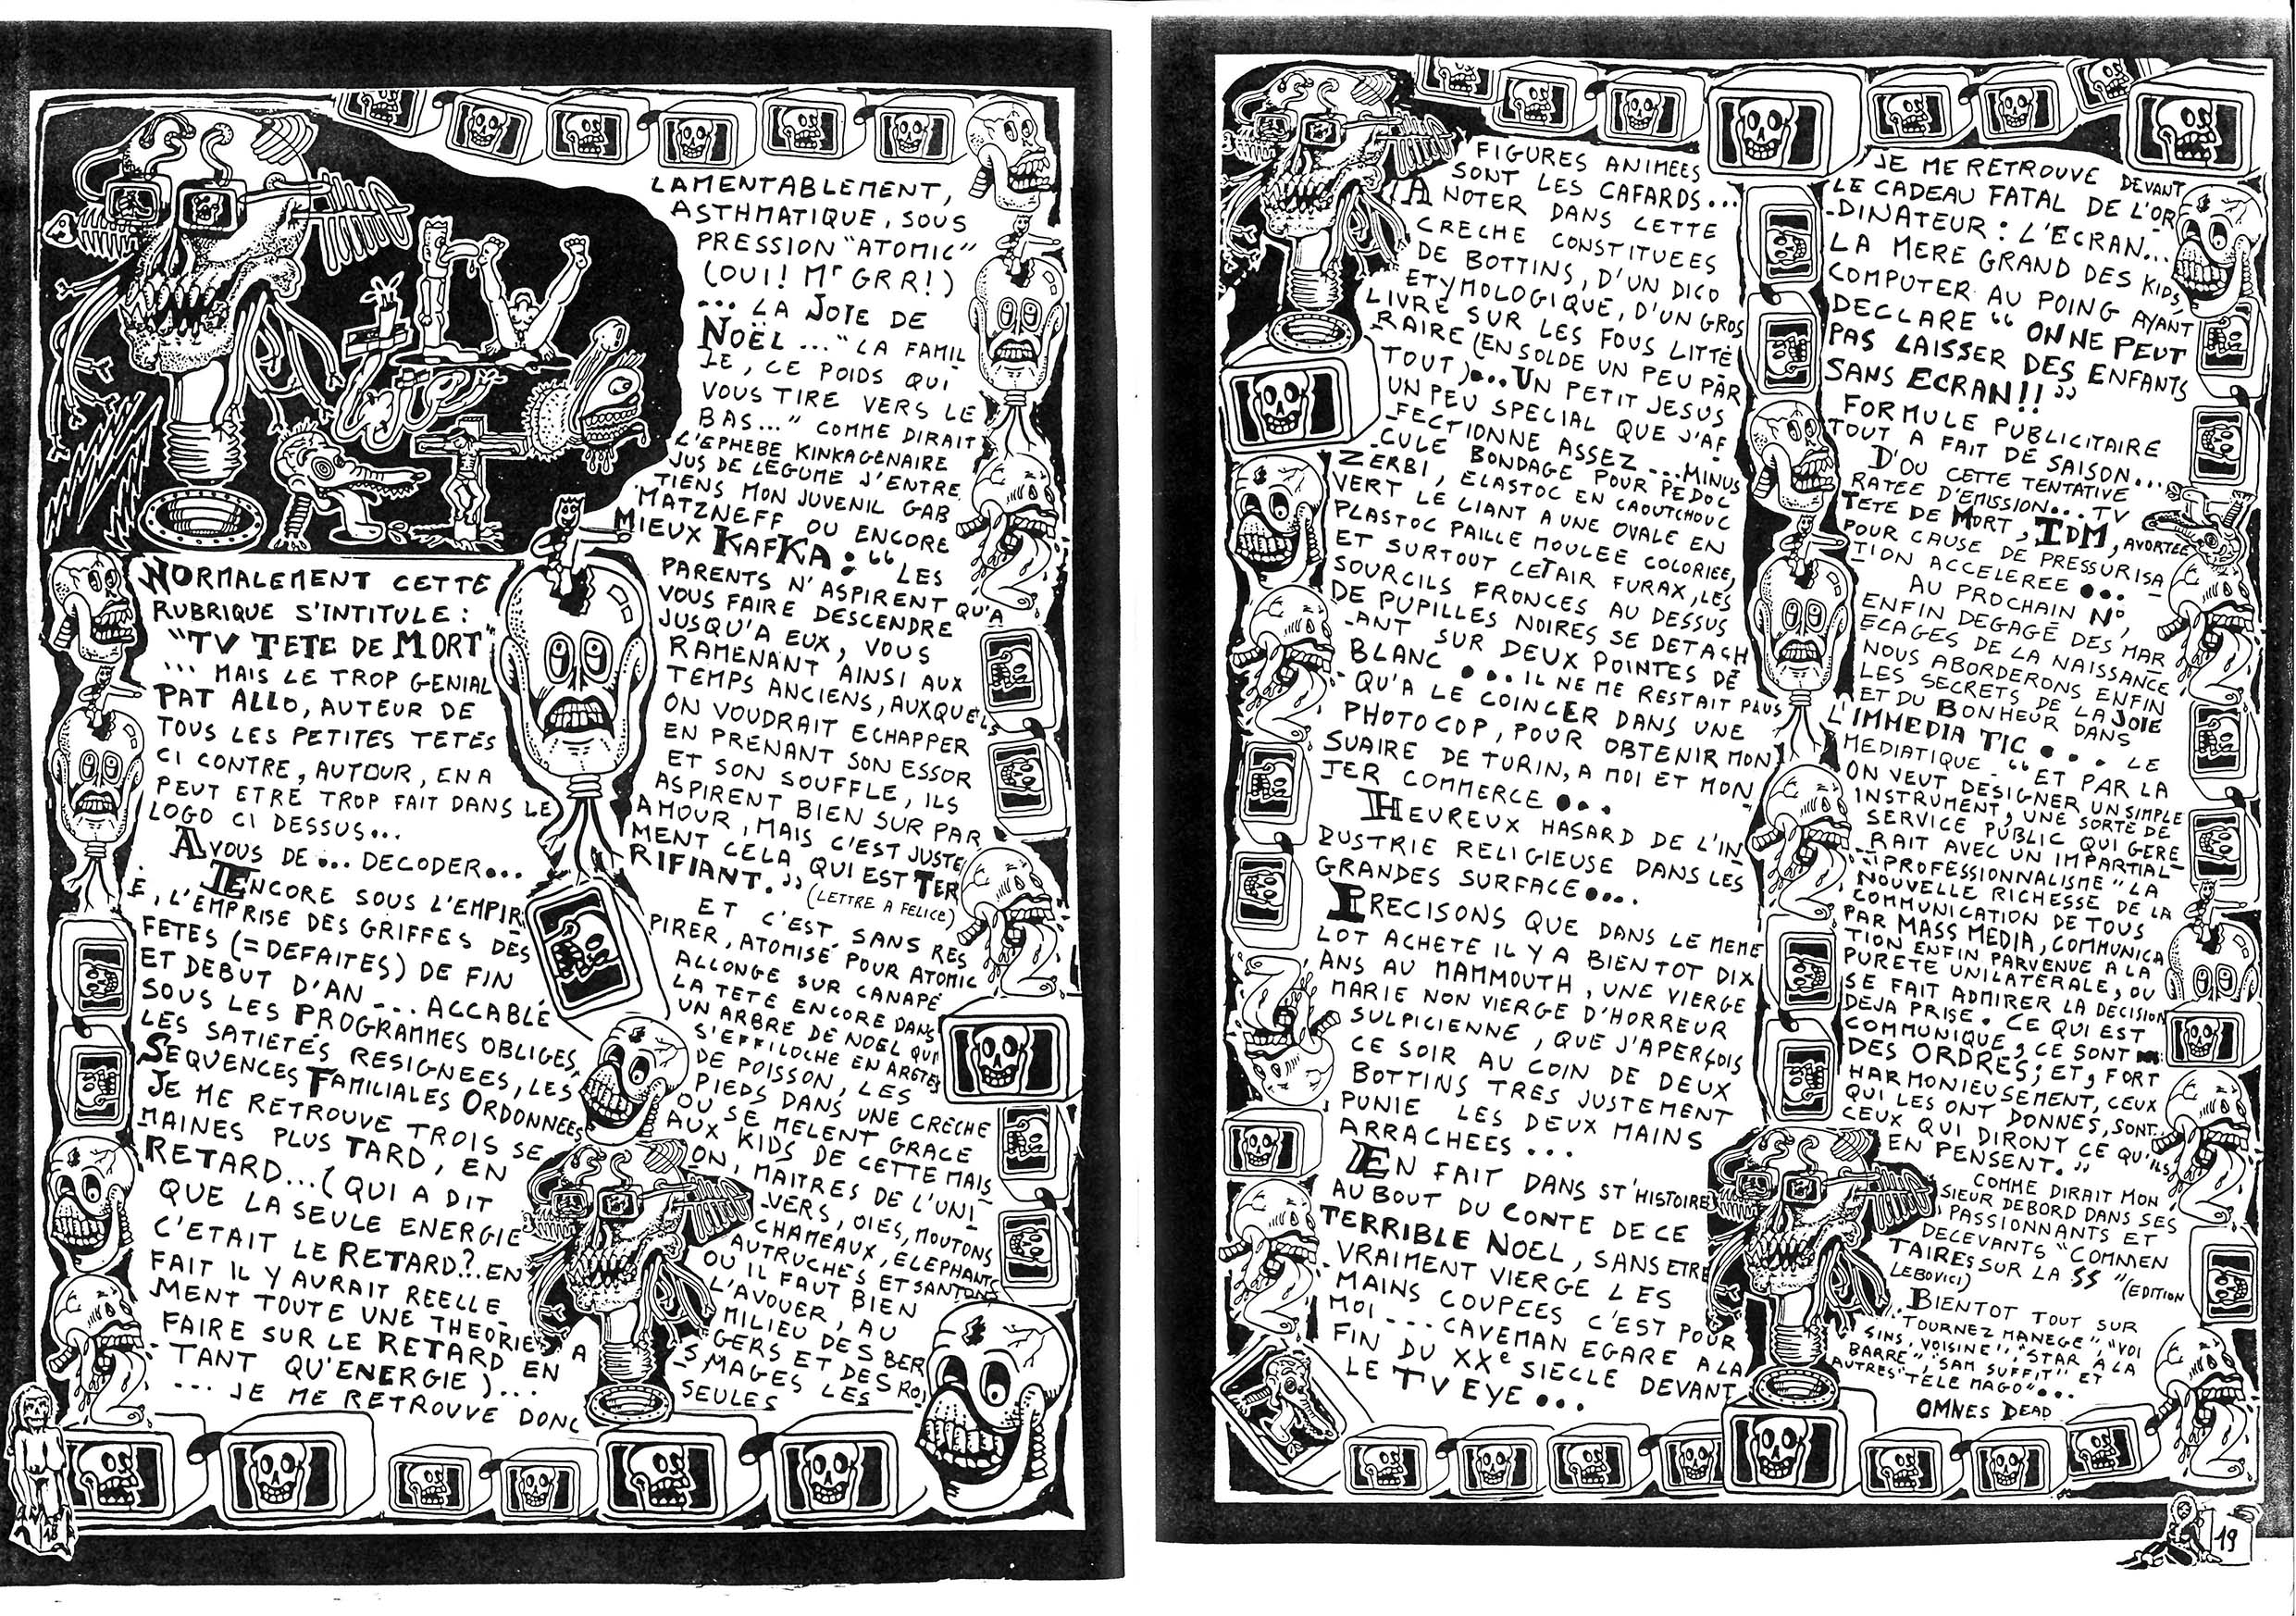 NORMALEMENT CETTE
RUBRIQUE S'INTITULE :
"TV TETE DE MORT"
... MAIS LE TROP GENIAL
PAT ALLO, AUTEUR DE
TOUS LES PETITES TETES
CI CONTRE, AUTOUR, EN A
PEUT ETRE TROP FAIT DANS LE
LOGO CI DESSUS...
A VOUS DE ... DECODER...
ENCORE SOUS L'EMPIR
E, L'EMPRISE DES GRIFFES DES
FETES (= DEFAITES) DE FIN
ET DEBUT D'AN... ACCABLÉ
SOUS LES PROGRAMMES OBLIGES,
LES SATIETÉS RESIGNEES, LES
SEQUENCES FAMILIALES ORDONNEES
JE ME RETROUVE TROIS SE
MAINES PLUS TARD, EN
RETARD...( QUI A DIT
QUE LA SEULE ENERGIE
C'ETAIT LE RETARD?. EN
FAIT IL Y AURAIT REELLE
MENT TOUTE UNE THEORIE A
FAIRE SUR LE RETARD EN
TANT QU'ENERGIE )...
... JE ME RETROUVE DONC
LAMENTABLEMENT,
ASTHMATIQUE, SOUS
PRESSION "ATOMIC"
(OUI! Mr GRR!)
... LA JOIE DE
NOËL ... "LA FAMIL
LE, CE POIDS QUI
VOUS TIRE VERS LE
BAS..." COMME DIRAIT
L'EPHEBE KINKAGENAIRE
JUS DE LEGUME J'ENTRE
TIENS MON JUVENIL GAB
MATZNEFF OU ENCORE
MIEUX KAFKA : "LES
PARENTS N'ASPIRENT QU'A
VOUS FAIRE DESCENDRE
JUSQU'A EUX, VOUS
RAMENANT AINSI AUX
TEMPS ANCIENS, AUXQUELS
ON VOUDRAIT ECHAPPER
EN PRENANT SON ESSOR
ET SON SOUFFLE, ILS
ASPIRENT BIEN SUR PAR
AMOUR, MAIS C'EST JUSTE
MENT CELA QUI EST TER
RIFIANT." (LETTRE A FELICE)
ET C'EST SANS RES
PIRER, ATOMISÉ POUR ATOMIC
ALLONGE SUR CANAPÉ
LA TETE ENCORE DANS
UN ARBRE DE NOEL QUI
S'EFFILOCHE EN ARETES
DE POISSON, LES
PIEDS DANS UNE CRECHE
OU SE MELENT GRACE
AUX KIDS DE CETTE MAIS
ON, MAITRES DE L'UNI
-VERS, OIES, MOUTONS
CHAMEAUX, ELEPHANTS
AUTRUCHES ET SANTONS
OU IL FAUT BIEN
L'AVOUER, AU
MILIEU DES BER
GERS ET DES ROI
S MAGES LES
SEULES
18
FIGURES ANIMEES
SONT LES CAFARDS...
A NOTER DANS CETTE
CRECHE CONSTITUEES
DE BOTTINS, D'UN DICO
ETYMOLOGIQUE, D'UN GROS
LIVRE SUR LES FOUS LITTE
RAIRE (EN SOLDE UN PEU PAR
TOUT)... UN PETIT JESUS
UN PEU SPECIAL QUE J'AF
-FECTIONNE ASSEZ... MINUS
-CULE BONDAGE POUR PEDOC
ZERBI, ELASTOC EN CAOUTCHOUC
VERT LE LIANT A UNE OVALE EN
PLASTOC PAILLE MOULEE COLORIEE,
ET SURTOUT CET AIR FURAX, LES
SOURCILS FRONCES AU DESSUS
DE PUPILLES NOIRES SE DETACH
-ANT SUR DEUX POINTES DE
BLANC ... IL NE ME RESTAIT PLUS
QU'A LE COINCER DANS UNE
PHOTOCOP, POUR OBTENIR MON
SUAIRE DE TURIN, A MOI ET MON
JER COMMERCE ...
HEUREUX HASARD DE L'IN
DUSTRIE RELIGIEUSE DANS LES
GRANDES SURFACE...
PRECISONS QUE DANS LE MEME
LOT ACHETE IL Y A BIENTOT DIX
ANS AU MAMMOUTH, UNE VIERGE
MARIE NON VIERGE D'HORREUR
SULPICIENNE, QUE J'APERÇOIS
CE SOIR AU COIN DE DEUX
BOTTINS TRES JUSTEMENT
PUNIE LES DEUX MAINS
ARRACHEES ...
EN FAIT DANS ST'HISTOIRE
AU BOUT DU CONTE DE CE
TERRIBLE NOEL, SANS ETRE
VRAIMENT VIERGE LES
MAINS COUPEES C'EST POUR
MOI ... CAVEMAN EGARE A LA
FIN DU XXe SIECLE DEVANT
LE TV EYE ...
JE ME RETROUVE DEVANT
LE CADEAU FATAL DE L'OR
-DINATEUR : L'ECRAN...
LA MERE GRAND DES KIDS,
COMPUTER AU POING AYANT
DECLARE " ON NE PEUT
PAS LAISSER DES ENFANTS
SANS ECRAN!! "
FORMULE PUBLICITAIRE
TOUT A FAIT DE SAISON...
D'OU CETTE TENTATIVE
RATEE D'EMISSION... TV
TETE DE MORT, IDM, AVORTEE
POUR CAUSE DE PRESSURISA
TION ACCELEREE ...
AU PROCHAIN No,
ENFIN DEGAGÉ DES MAR
ECAGES DE LA NAISSANCE
NOUS ABORDERONS ENFIN
LES SECRETS DE LA JOIE
ET DU BONHEUR DANS
L'IMMEDIA TIC ... LE
MEDIATIQUE - " ET PAR LA
ON VEUT DESIGNER UN SIMPLE
INSTRUMENT, UNE SORTE DE
SERVICE PUBLIC QUI GERE
RAIT AVEC UN IMPARTIAL
"PROFESSIONNALISME" LA
NOUVELLE RICHESSE DE LA
COMMUNICATION DE TOUS
PAR MASS MEDIA, COMMUNICA
TION ENFIN PARVENUE A LA
PURETE UNILATERALE, OU
SE FAIT ADMIRER LA DECISION
DEJA PRISE. CE QUI EST
COMMUNIQUE, CE SONT
DES ORDRES; ET, FORT
HARMONIEUSEMENT, CEUX
QUI LES ONT DONNES, SONT
CEUX QUI DIRONT CE QU'ILS
EN PENSENT."
COMME DIRAIT MON
SIEUR DEBORD DANS SES
PASSIONNANTS ET
DECEVANTS "COMMEN
TAIRES SUR LA SS" (EDITION
LEBOVICI)
BIENTOT TOUT SUR
"TOURNEZ MANEGE", "VOI
SINS, VOISINE", "STAR A LA
BARRE", "SAM SUFFIT" ET
AUTRES "TELE MAGO"...
OMNES DEAD
19